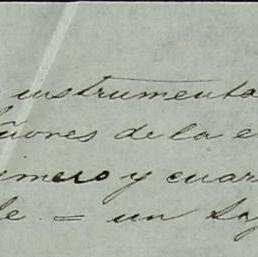 instrumenta
ñores de la e
imero y cuar
le = un